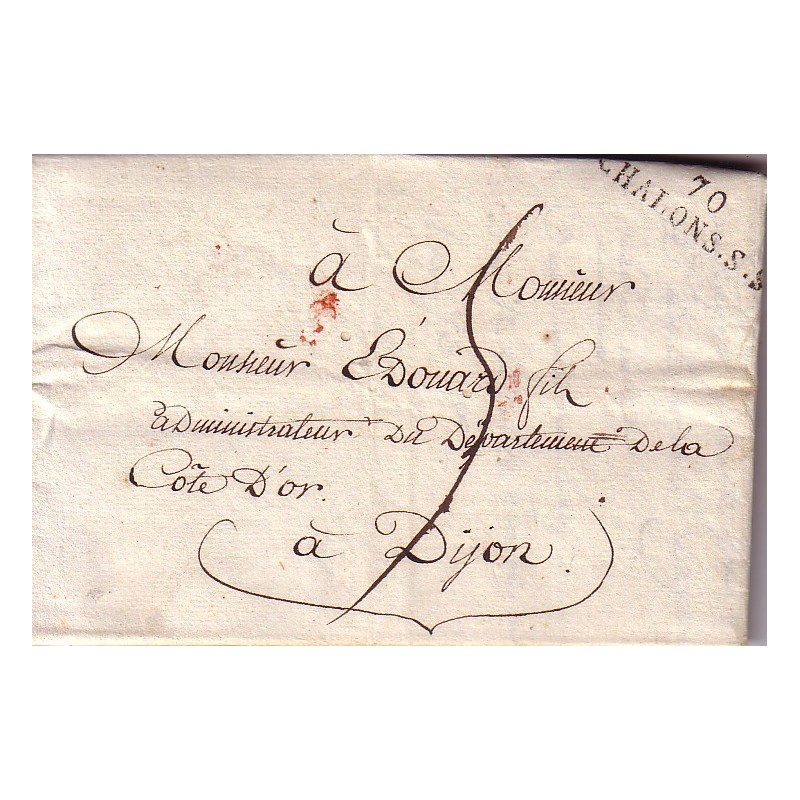 70
CHALONS.S.S
à Monsieur
Monsieur Edouard fils
administrateur du Département de la
Côte D'or.
à Dijon.